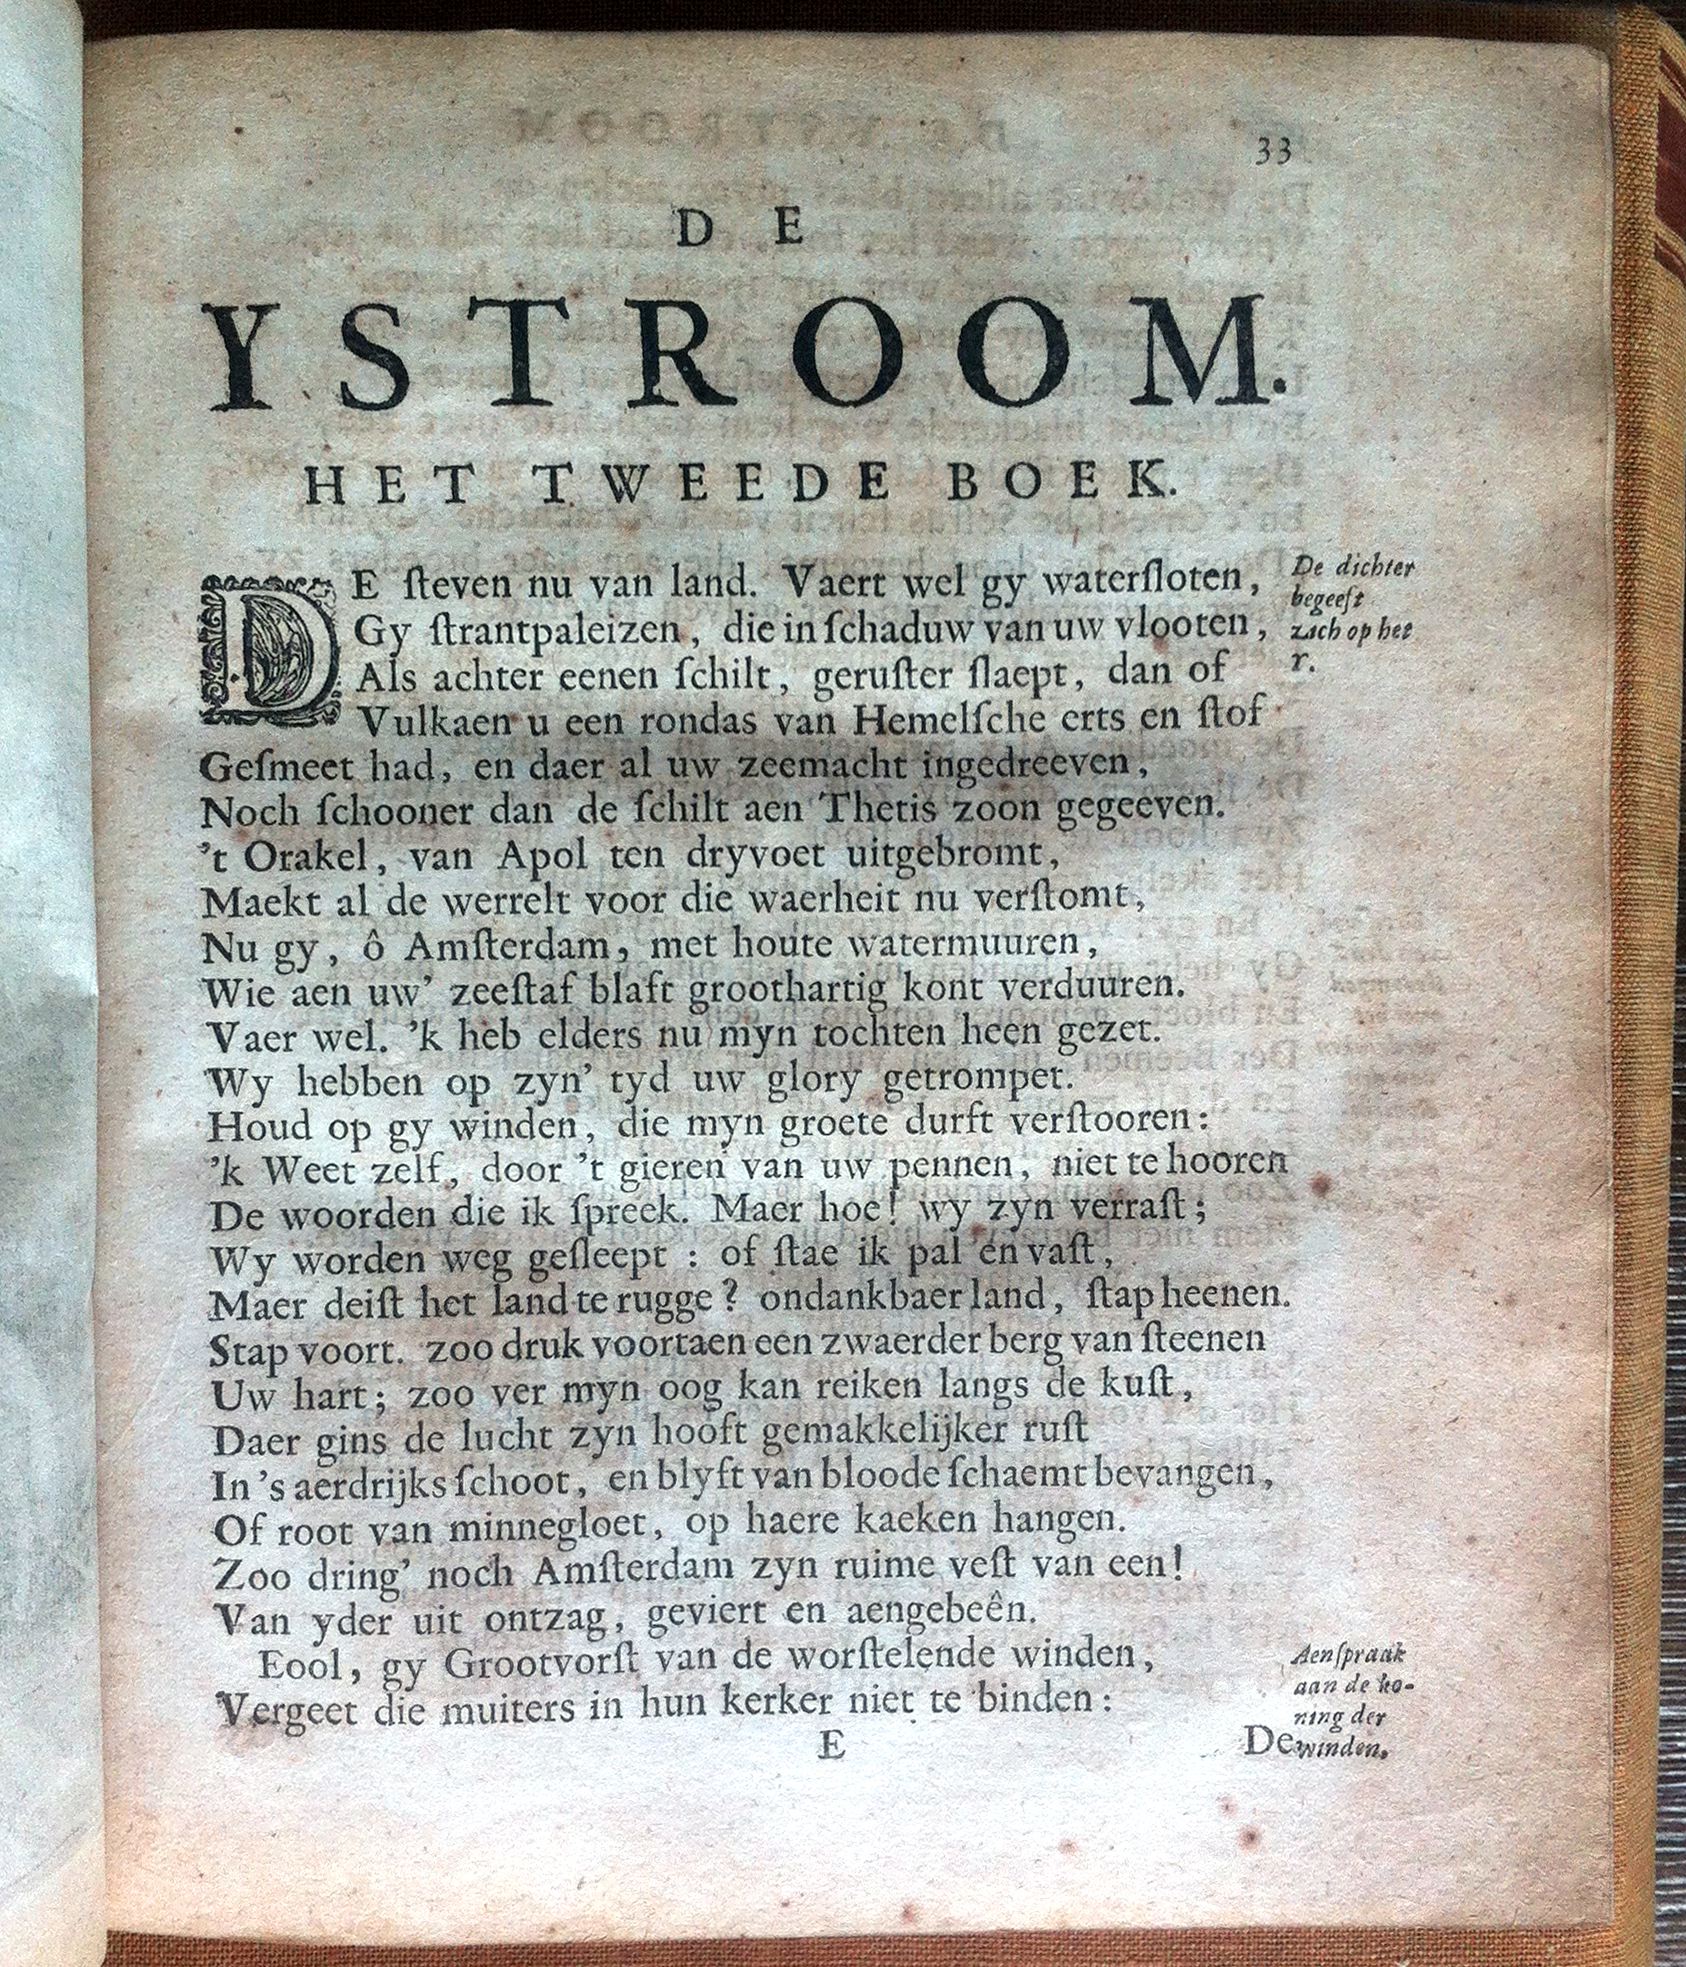 33
D E
YSTROOM.
HET TWEEDE BOEK.
DE ſteven nu van land. Vaert wel gy waterſloten,
Gy ſtrantpaleizen, die in ſchaduw van uw vlooten,
Als achter eenen ſchilt, geruſter ſlaept, dan of
Vulkaen u een rondas van Hemelſche erts en ſtof
Geſmeet had, en daer al uw zeemacht ingedreeven,
Noch ſchooner dan de ſchilt aen Thetis zoon gegeeven.
't Orakel, van Apol ten dryvoet uitgebromt,
Maekt al de werrelt voor die waerheit nu verſtomt,
Nu gy, ô Amſterdam, met houte watermuuren,
Wie aen uw' zeeſtaf blaft groothartig kont verduuren.
Vaer wel. 'k heb elders nu myn tochten heen gezet.
Wy hebben op zyn' tyd uw glory getrompet.
Houd op gy winden, die myn groete durft verſtooren:
'k Weet zelf, door 't gieren van uw pennen, niet te hooren
De woorden die ik ſpreek. Maer hoe! wy zyn verraſt;
Wy worden weg geſleept : of ſtae ik pal en vaſt,
Maer deiſt het land te rugge? ondankbaer land, ſtap heenen.
Stap voort. zoo druk voortaen een zwaerder berg van ſteenen
Uw hart; zoo ver myn oog kan reiken langs de kuſt,
Daer gins de lucht zyn hooft gemakkelijker ruſt
In 's aerdrijks ſchoot, en blyft van bloode ſchaemt bevangen,
Of root van minnegloet, op haere kaeken hangen.
Zoo dring' noch Amſterdam zyn ruime veſt van een!
Van yder uit ontzag, geviert en aengebeên.
Eool, gy Grootvorſt van de worſtelende winden,
Vergeet die muiters in hun kerker niet te binden:
E
De
De dichter
begeeft
zich op het
r.
Aenſpraak
aan de ko-
ning der
winden.